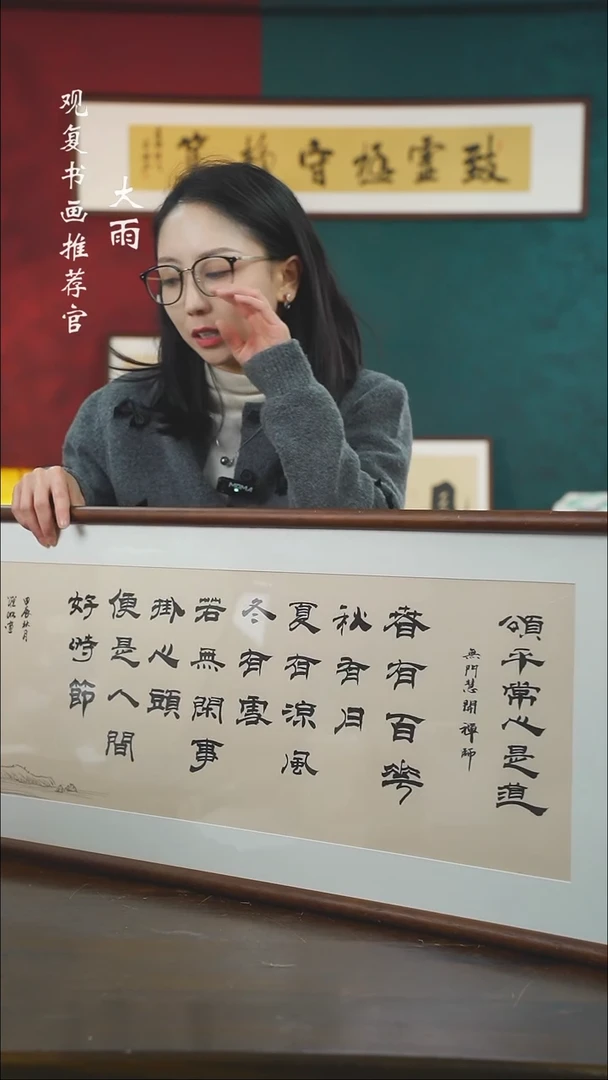 观复书画推荐官
大雨
致虛極守靜
頌平常心是道
無門慧開禪師
春有百華
秋有月
夏有涼風
冬有雪
若無閑事
掛心頭
便是人間
好時節
甲辰秋月